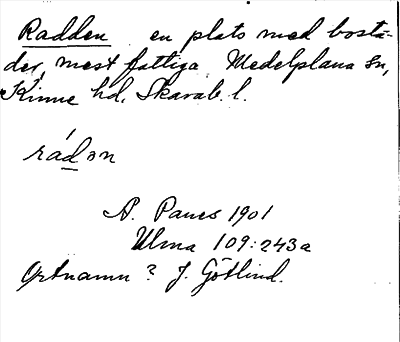 Radden en plats med bostä-
der, mest fattiga. Medelplana sn,
Kinne hd, Skarab. l.
rádən
A. Paues 1901
Ulma 109:243a
Ortnamn? J. Götlind.